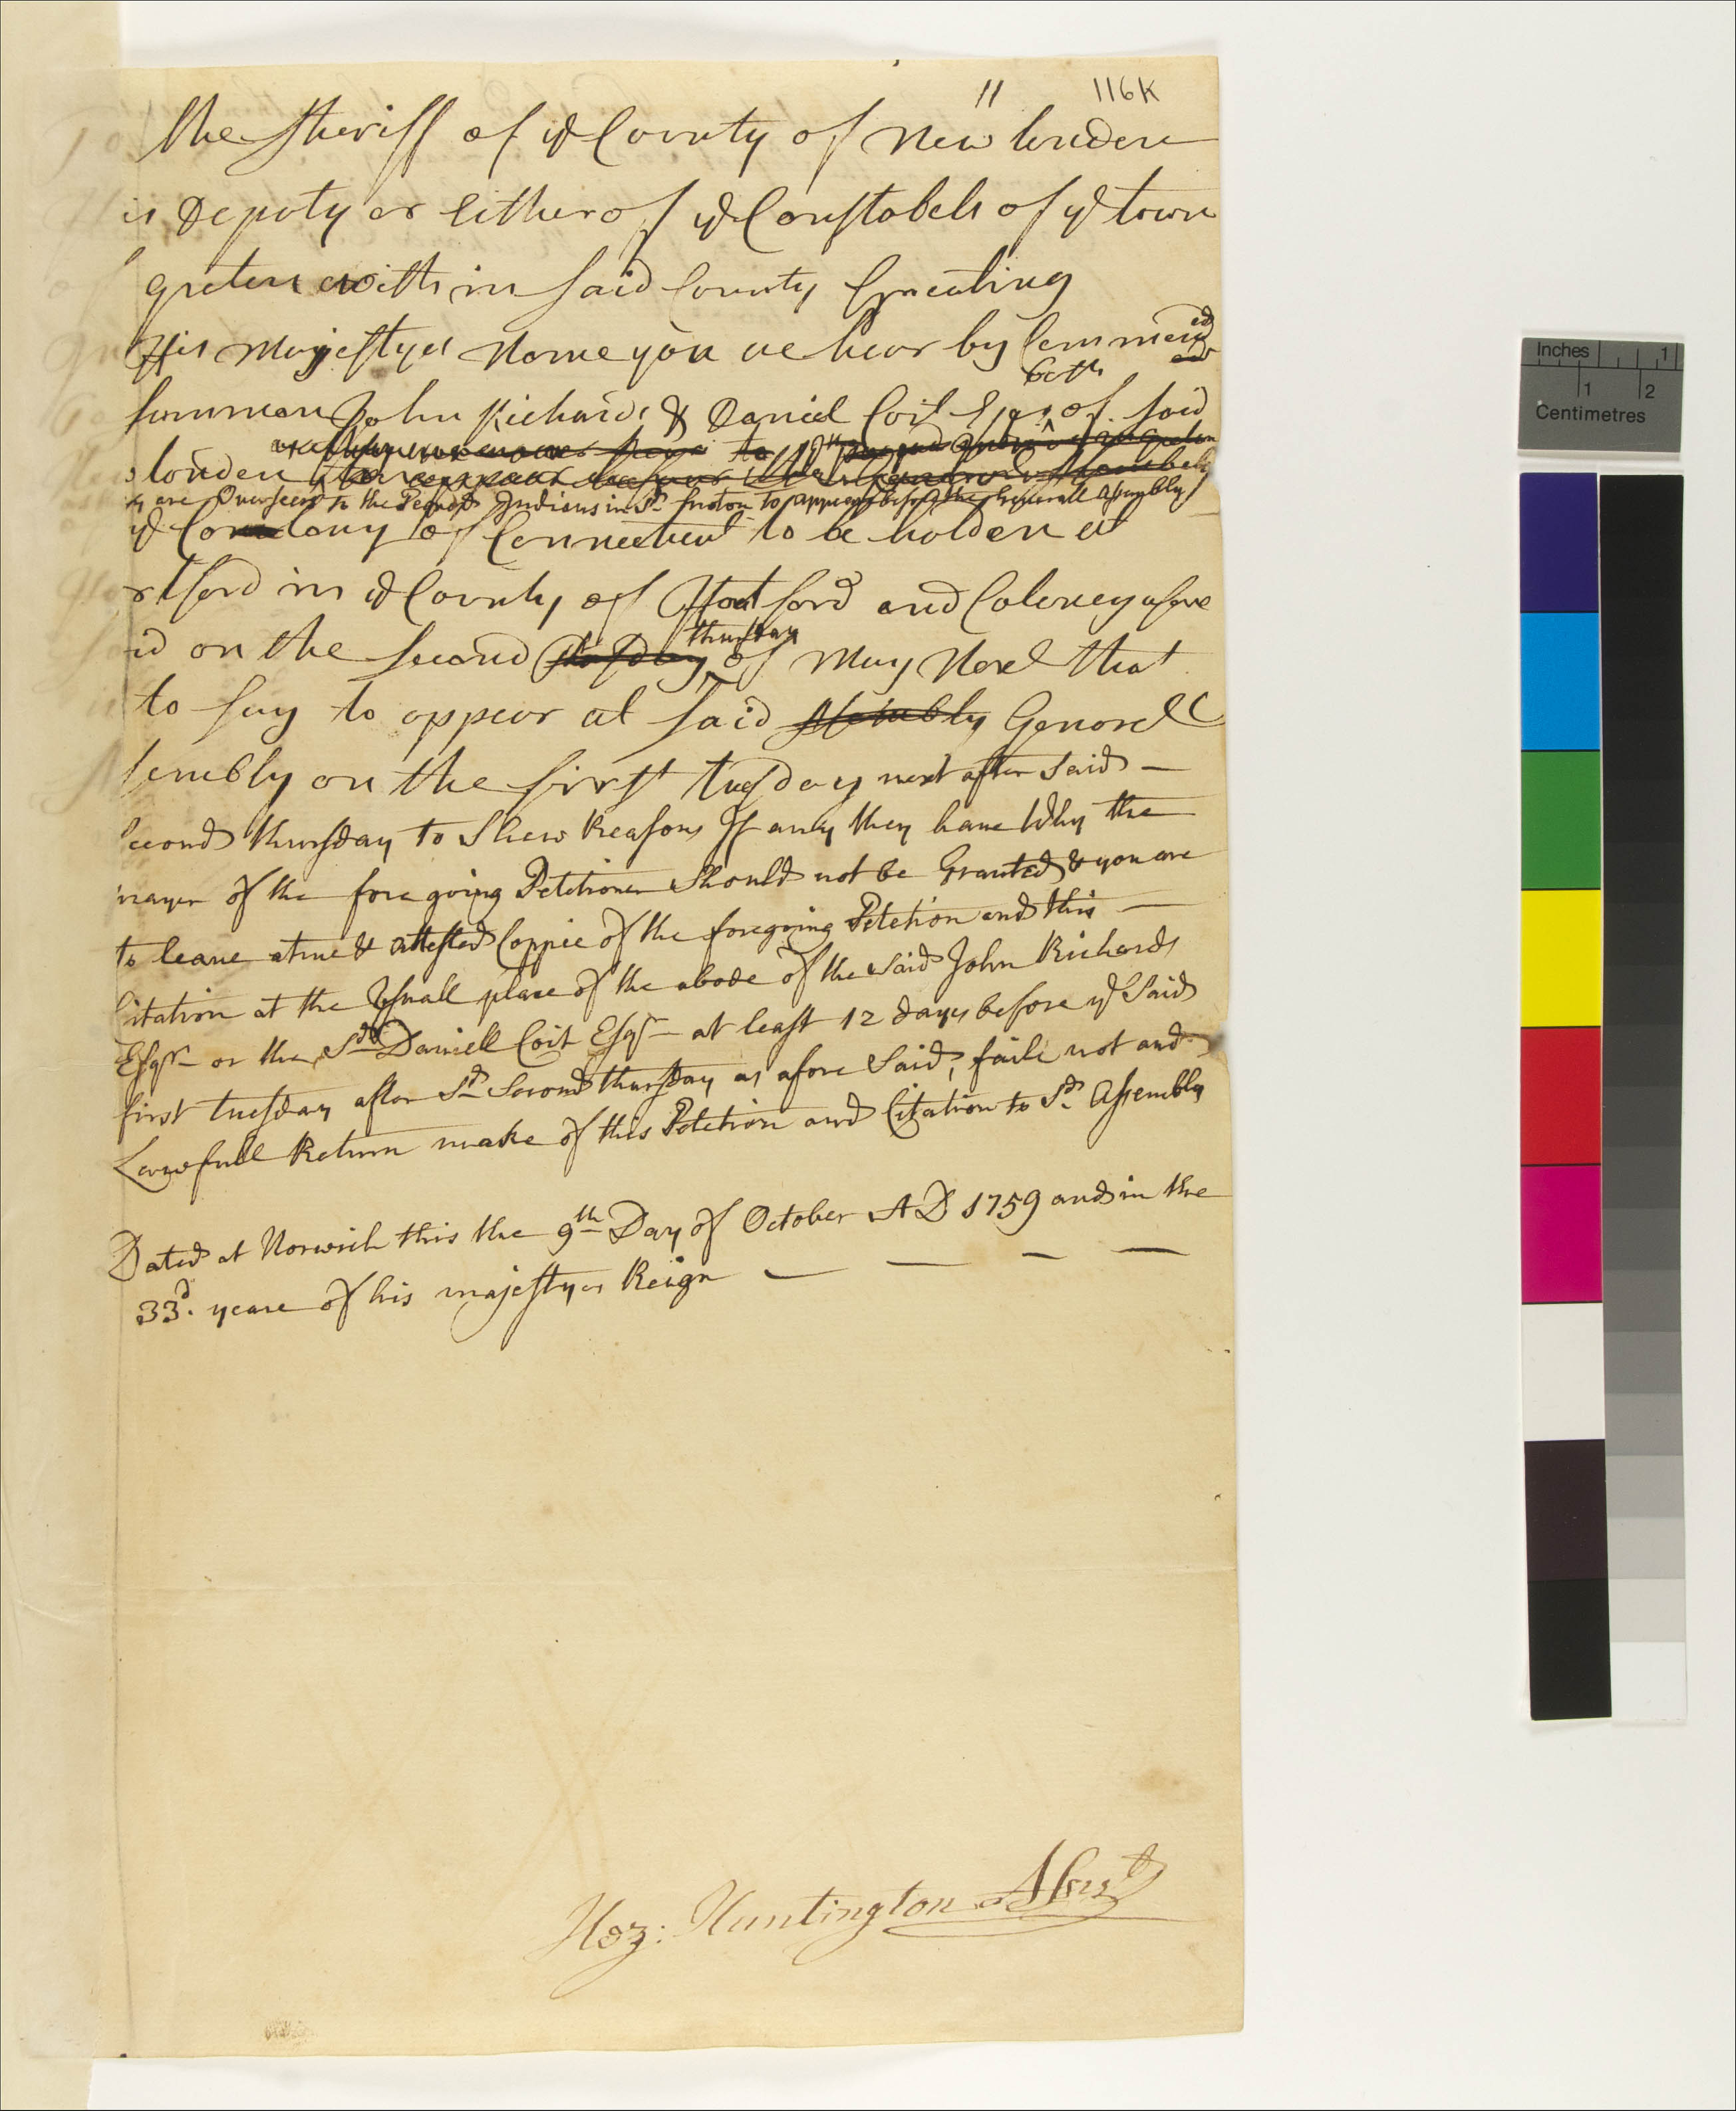 11 116K
the Sheriff of ye County of New londen
is Deputy or Either of ye Constabels of ye town
groten with in said County Greeting
His Majestyes Name you are hear by Commended
both
summon John Richards & Daniel Coit Esqrs of said
londen to appear before the
are Overseers to the Pequot Indians in Sd. Groton to appear before the Generall Assembly
ye Colony of Connecticut to be holden at
rtford in ye County of Hartford and Coloney afore
id on the second thursday of May Next that
to say to appear at said Assembly Generall
sembly on the first tuesday next after said —
second thursday to Shew Reasons If any they have Why the
prayer of the fore going Petitioner Should not be Granted & you are
to leave a true & attested Coppie of the foregoing Petetion and this —
Citation at the Usuall place of the abode of the said John Richards
Esqr or the Sd Daniell Coit Esqr at least 12 days before ye Said
first tuesday after Sd. Second thursday as afore Said, faile not and
Lawfull Return make of this Petetion and Citation to Sd. Assembly
Dated at Norwich this the 9th Day of October AD 1759 and in the
33d. yeare of his majestyes Reign — — — —
Hez: Huntington Assist
Inches 1
1 2
Centimetres